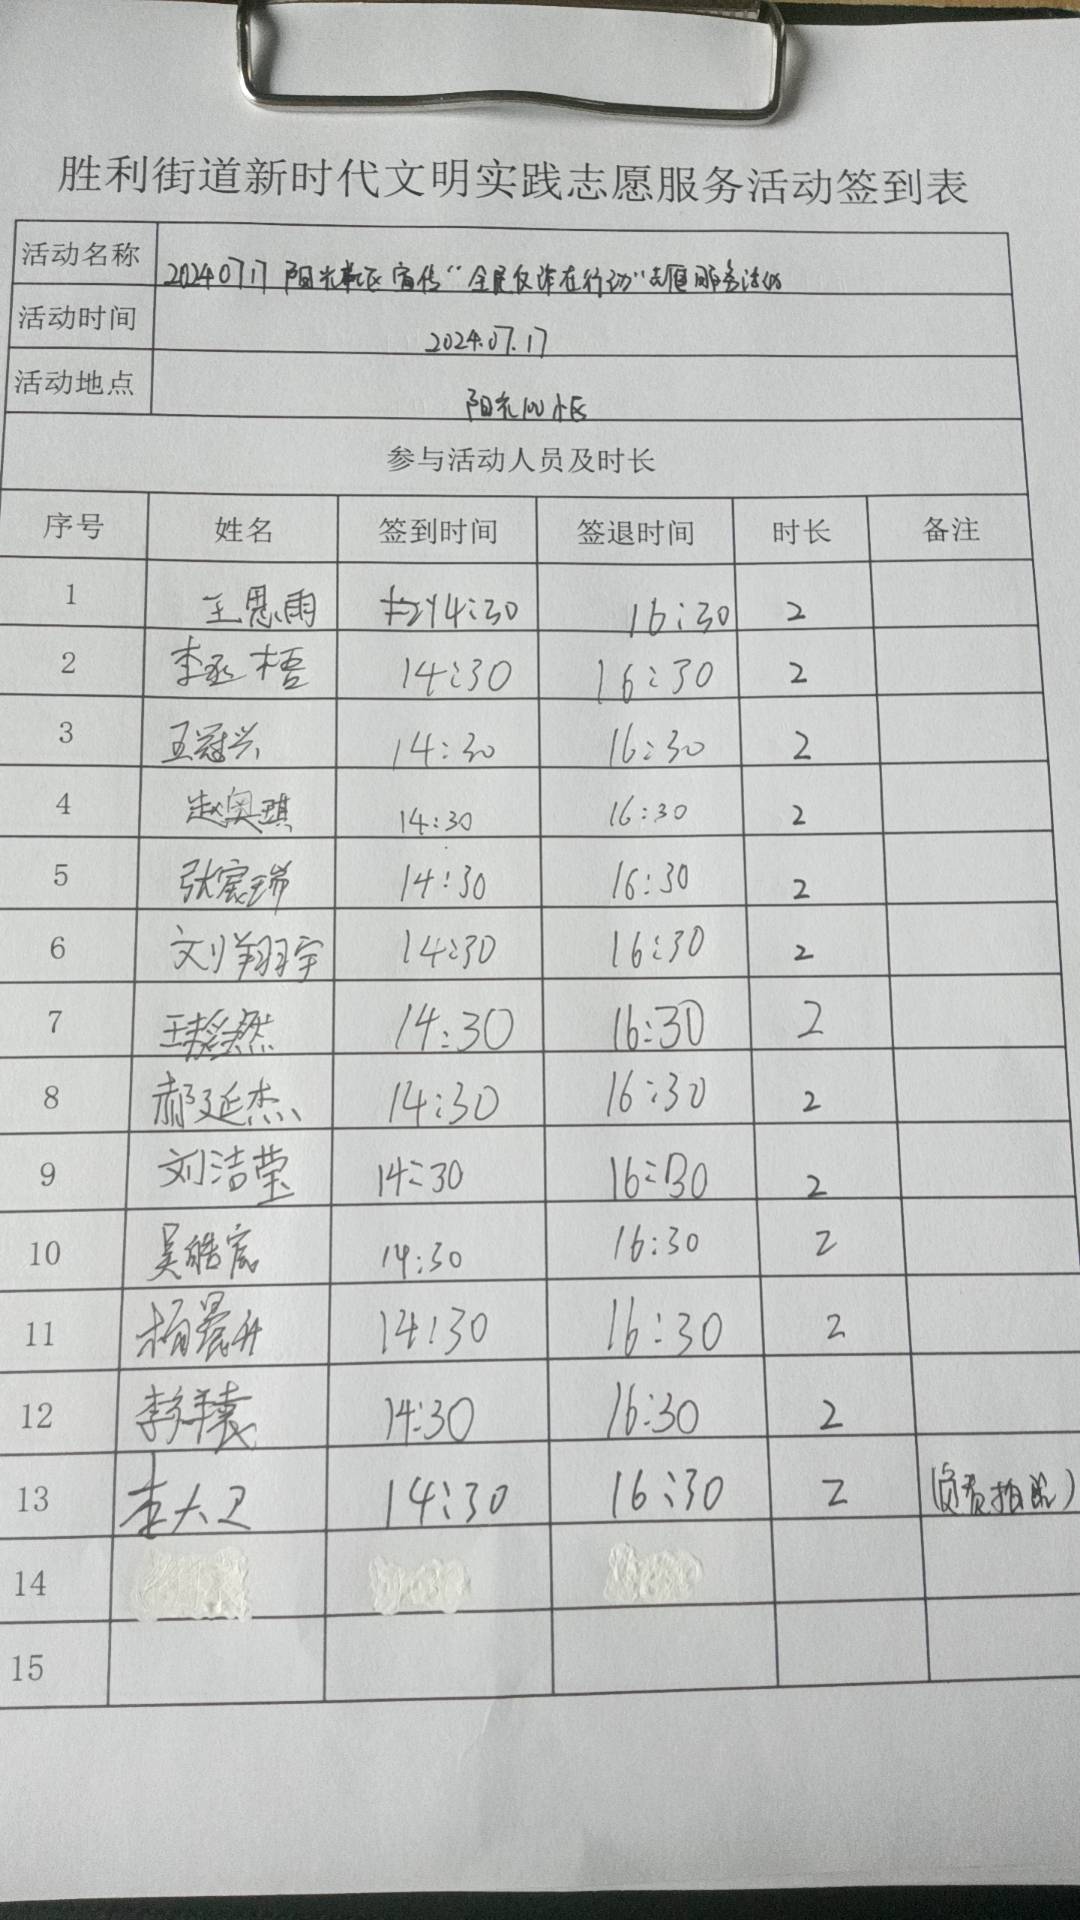 胜利街道新时代文明实践志愿服务活动签到表
活动名称 20240717 阳光社区宣传“全民反诈在行动”志愿服务活动
活动时间 2024.07.17
活动地点 阳光100小区
参与活动人员及时长
序号 姓名 签到时间 签退时间 时长 备注
1 王思雨 14:30 16:30 2
2 李丞梧 14:30 16:30 2
3 王冠兴 14:30 16:30 2
4 赵奥琪 14:30 16:30 2
5 张宸瑞 14:30 16:30 2
6 刘翔宇 14:30 16:30 2
7 王然 14:30 16:30 2
8 郝延杰 14:30 16:30 2
9 刘洁莹 14:30 16:30 2
10 吴皓宸 14:30 16:30 2
11 杨晨升 14:30 16:30 2
12 李 14:30 16:30 2
13 李大卫 14:30 16:30 2 (负责拍照)
14
15